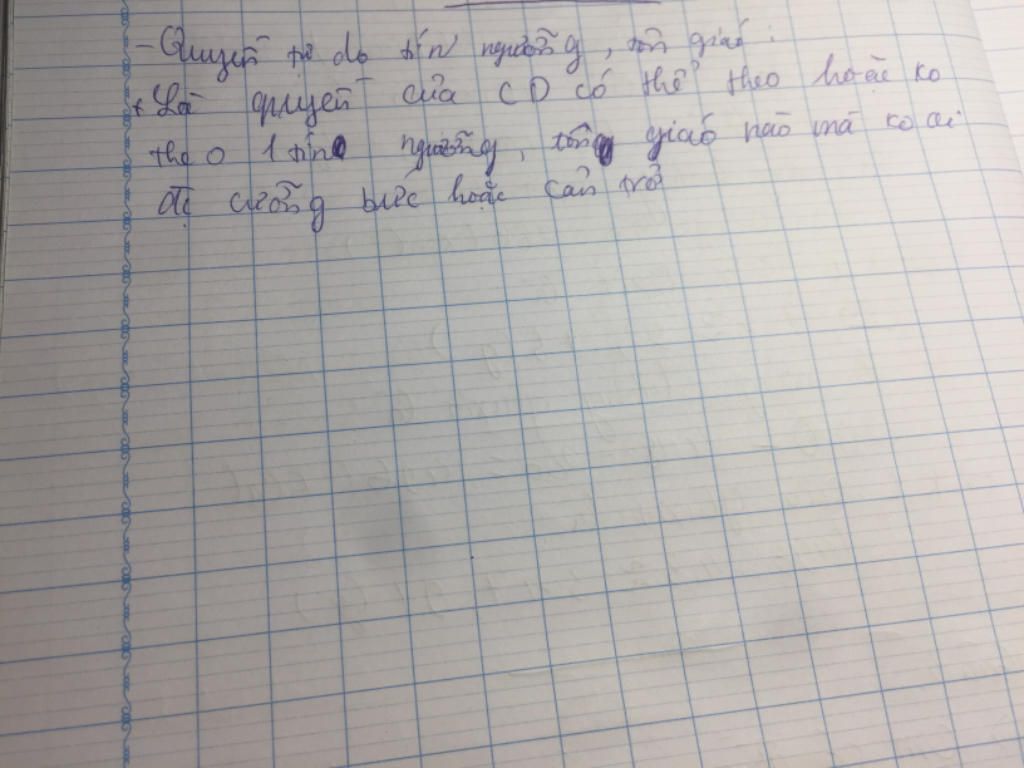 - Quyền tự do tín ngưỡng, tôn giáo :
+ Là quyền của CD có thể theo hoặc ko
theo 1 tín ngưỡng, tông giáo nào mà ko ai
đc cưỡng bức hoặc cản trở